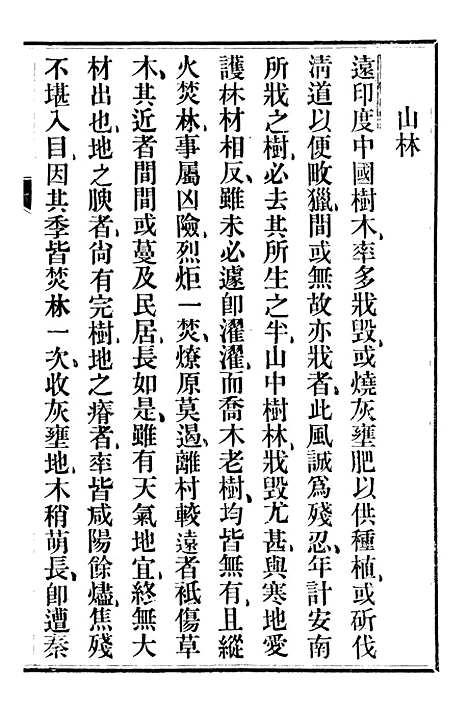 山林
遠印度中國樹木、率多戕毀、或燒灰壅肥以供種植、或斫伐
淸道以便畋獵、間或無故亦戕者、此風誠爲殘忍、年計安南
所戕之樹、必去其所生之半、山中樹林、戕毀尤甚、與寒地愛
護林材相反、雖未必遽卽濯濯、而喬木老樹、均皆無有、且縱
火焚林、事屬凶險、烈炬一焚、燎原莫遏、離村較遠者、祇傷草
木、其近者間間或蔓及民居、長如是、雖有天氣地宜、終無大
材出也、地之腴者、尙有完樹、地之瘠者、率皆咸陽餘燼、焦殘
不堪入目、因其季皆焚林一次、收灰壅地、木稍萌長、卽遭秦